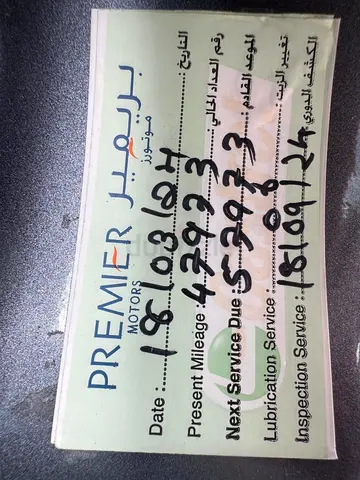 PREMIER بريمير
MOTORS موتورز
Date : 18/03/24 التاريخ :
Present Mileage : 42923 رقم العداد الحالي :
Next Service Due : 52923 الموعد القادم :
Lubrication Service : or تغيير الزيت :
Inspection Service : 18/09/24 الكشف الدوري :